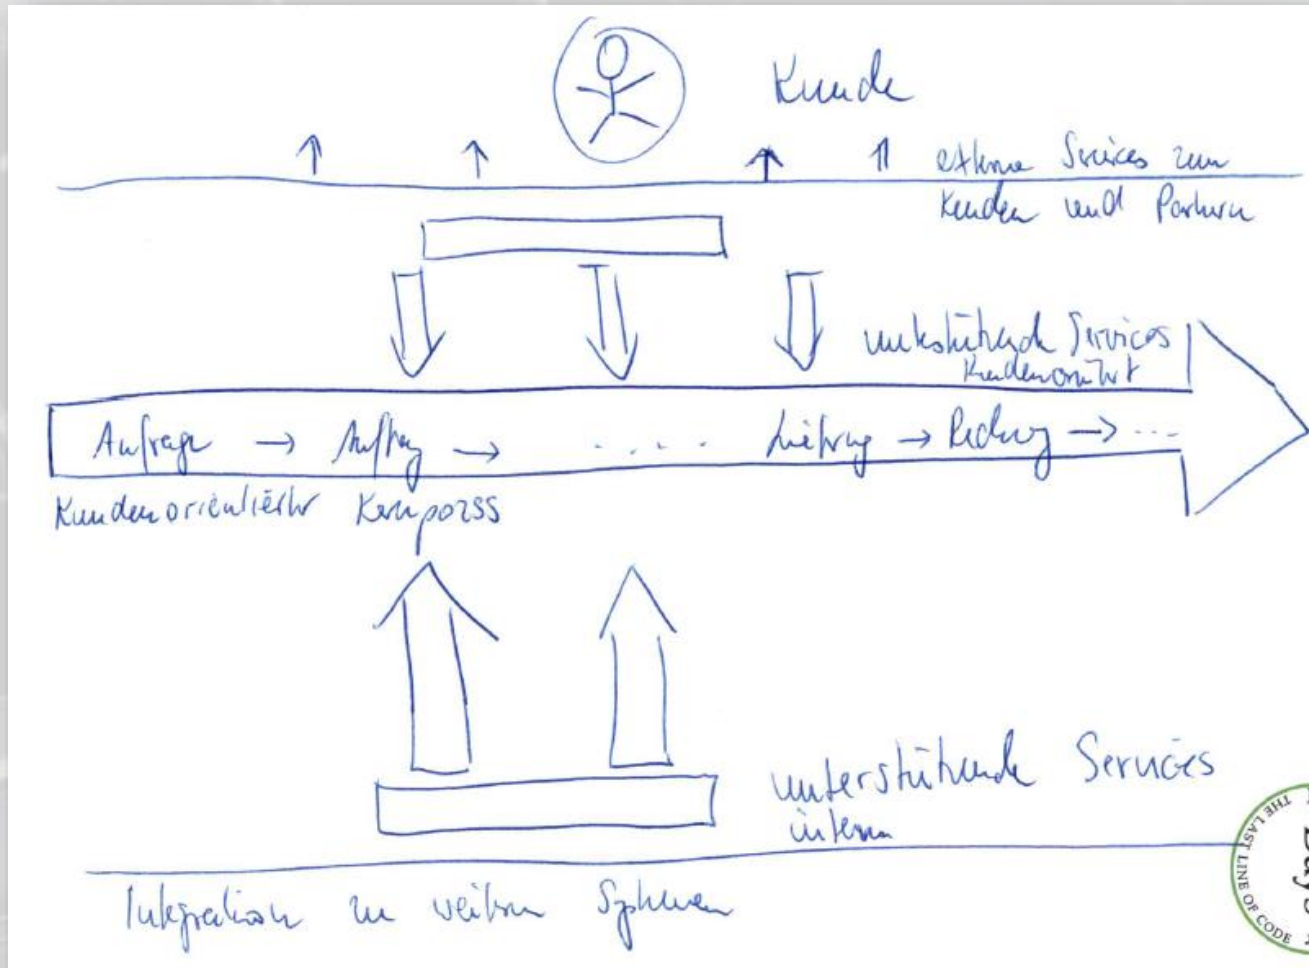 Kunde
externe Services zum
Kunden und Partnern
unterstützende Services
Kundenorientiert
Anfrage → Auftrag → . . . . Lieferung → Rechnung → ...
Kundenorientierter Kernprozess
unterstützende Services
intern
Integration zu weiteren Systemen
THE LAST LINE OF CODE